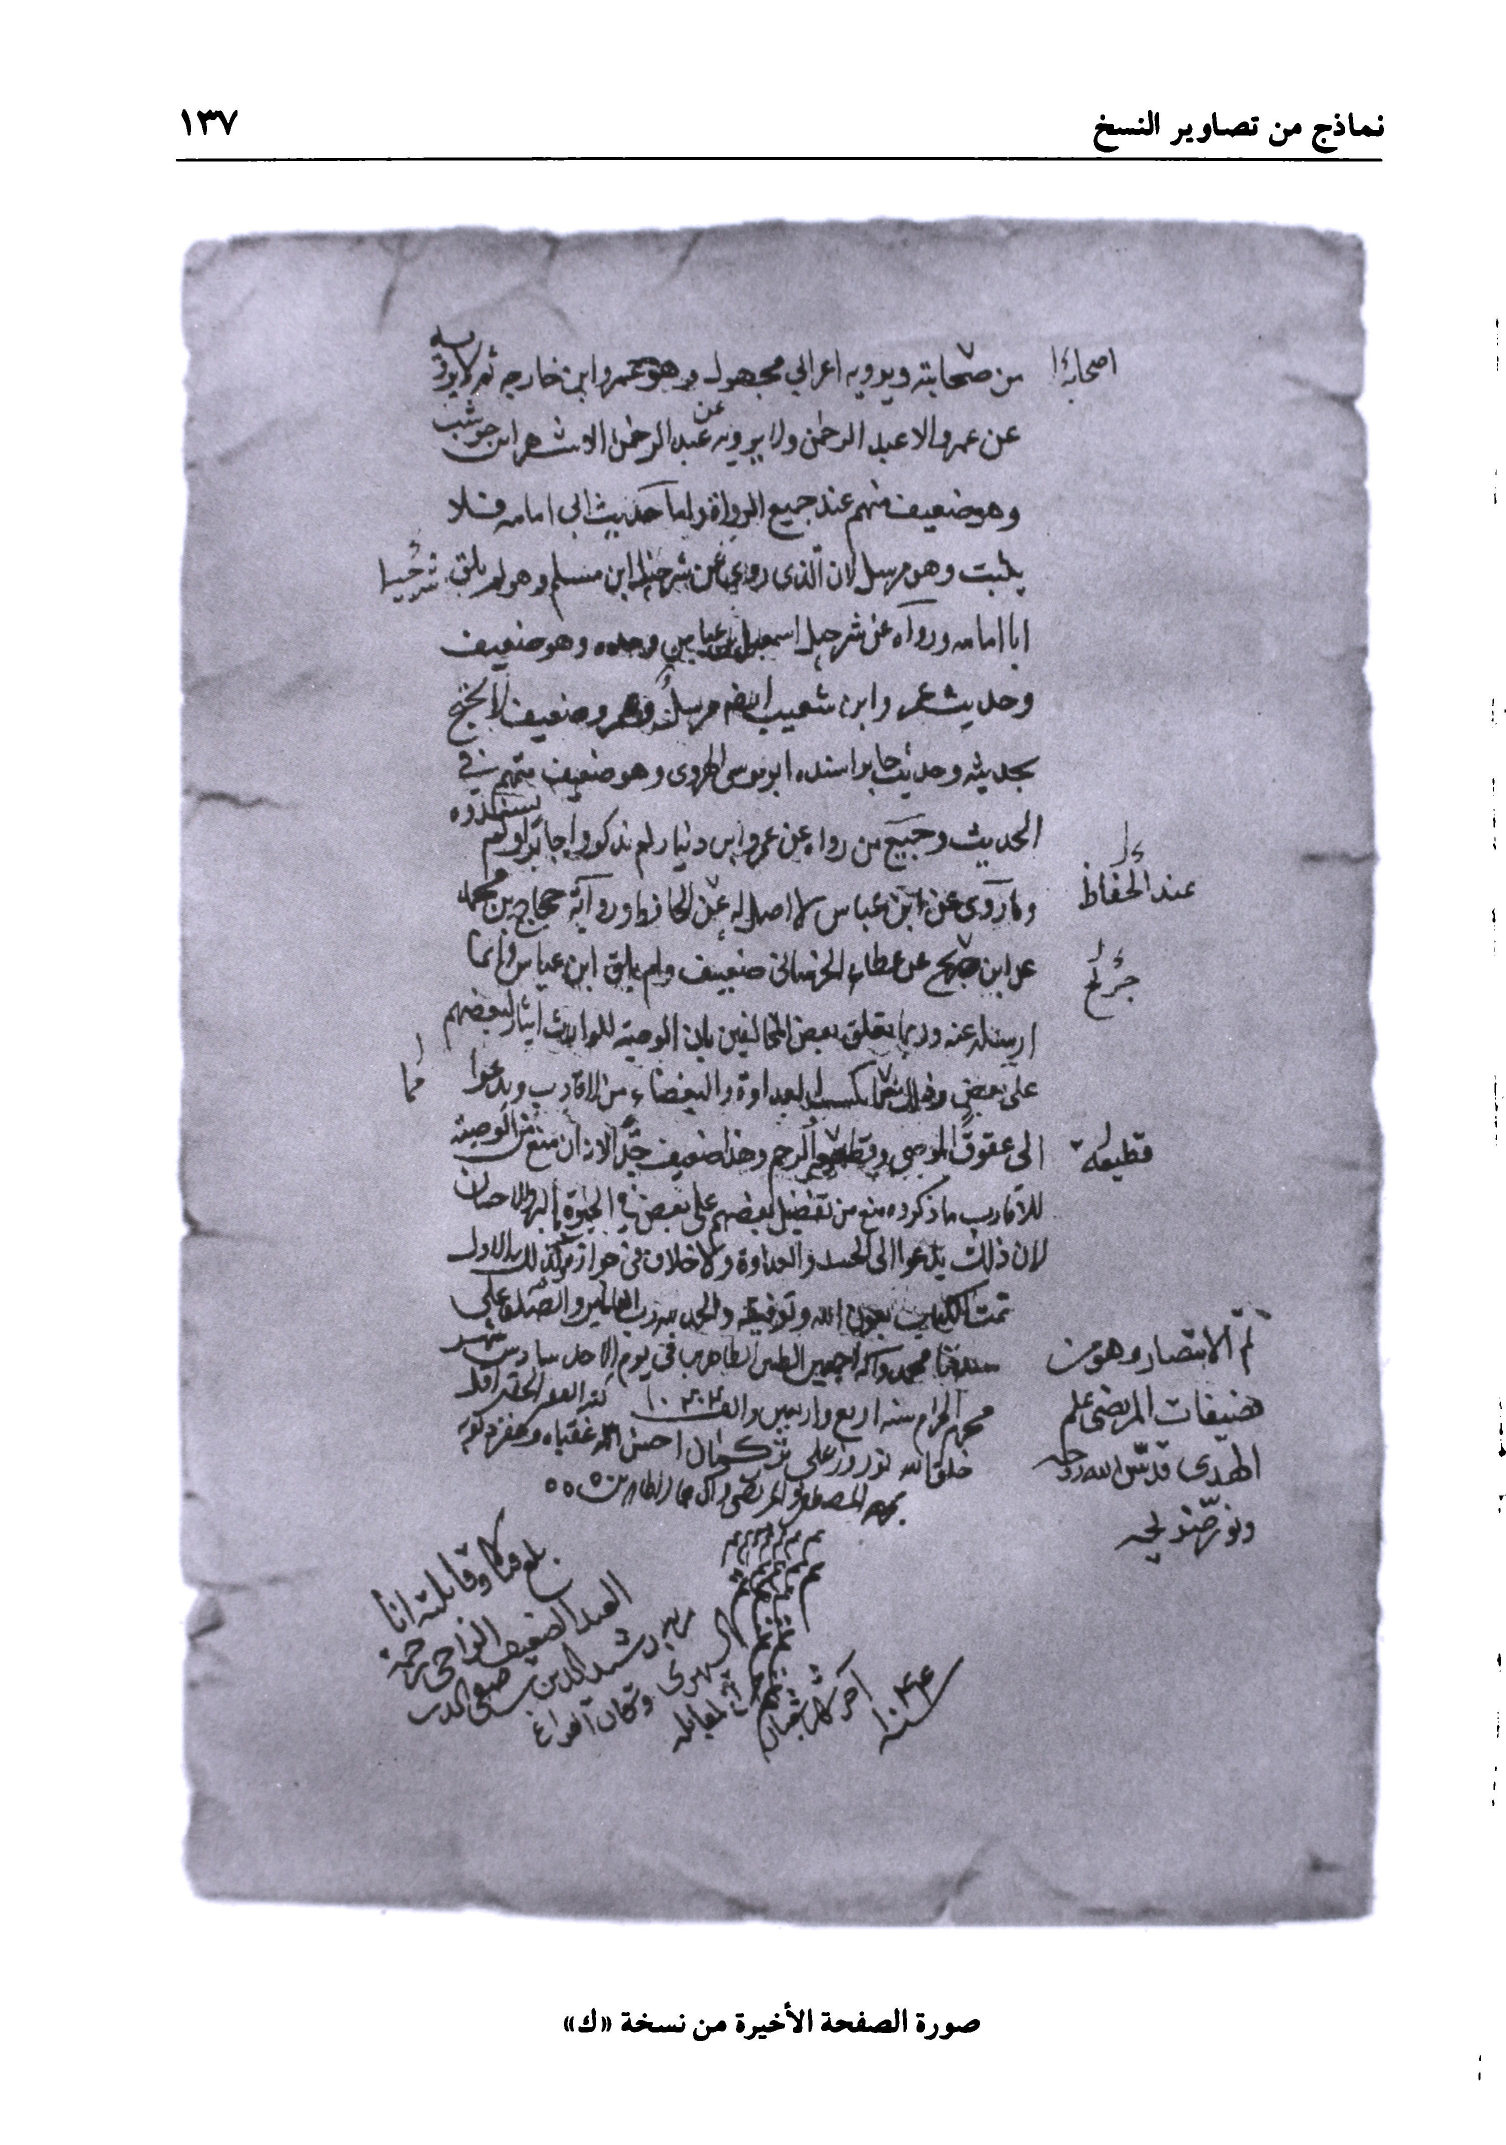 نماذج من تصاوير النسخ
١٣٧
من صحابته ويرويه اعرابي مجهول وهو عمرو ابن خارجه ثم لا يرويه
اصحابنا
عن عمرو الا عبد الرحمن ولا يرويه عن عبد الرحمن الا شهر ابن حوشب
وهو ضعيف متهم عند جميع الرواة واما حديث ابي امامه فلا
يثبت وهو مرسل لان الذى روي عن شرحبيل ابن مسلم وهو لم يلق
ابا امامه ورواه عن شرحبيل اسمعيل بن عياش وحده وهو ضعيف
وحديث عمرو ابن شعيب ايضا مرسل وعمرو ضعيف لا يحتج
بحديثه وحديث جابر اسنده ابو موسى الهروى وهو ضعيف متهم في
الحديث وجميع من رواه عن عمرو ابن دينار لم يذكروا جابرا ولم
يسندوه
وما روى عن ابن عباس لا اصل له عن ورواية حجاج بن محمد
عند الحفاظ
عن ابن عن عطاء الخراسانى ضعيف ولم يلق ابن عباس وانما
جريح
ارسله عنه وربما تعلق بعض المخالفين بان الوصية للوارث ايثار لبعضهم
على بعض وذلك يكسب العداوة والبغضاء من الاقارب ويدعوا
مما
الى عقوق الموصي وقطيعة الرحم وهذا ضعيف جدا لانه ان منع من الوصية
قطيعة
للاقارب ما ذكروه منع من تفضيل بعضهم على بعض في الحيوة بالبر والاحسان
لان ذلك يدعوا الى الحسد والعداوة ولا خلاف في جوازه وكذلك الاول
تمت الكتاب بعون الله وتوفيقه والحمد لله رب العالمين والصلوة على
سيدنا محمد وآله اجمعين الطيبين الطاهرين في يوم الاحد سادس شهر
محرم الحرام سنه اربع واربعين والف كتبه العبد الحقير اقل
خلق الله نوروز على تركمان احسن الله عقباه وغفر ذنوبه
بمحمد المصطفى والمرتضى
تم الانتصار وهو من
تصنيفات المرتضى علم
الهدى قدس الله روحه
ونور ضريحه
بلغ قابلته انا
العبد الضعيف الراجي رحمة
ربه رشيد الدين بن صفى الدين
وكان الفراغ
المقابله
آخر شهر شعبان
سنه
صورة الصفحة الأخيرة من نسخة «ك»